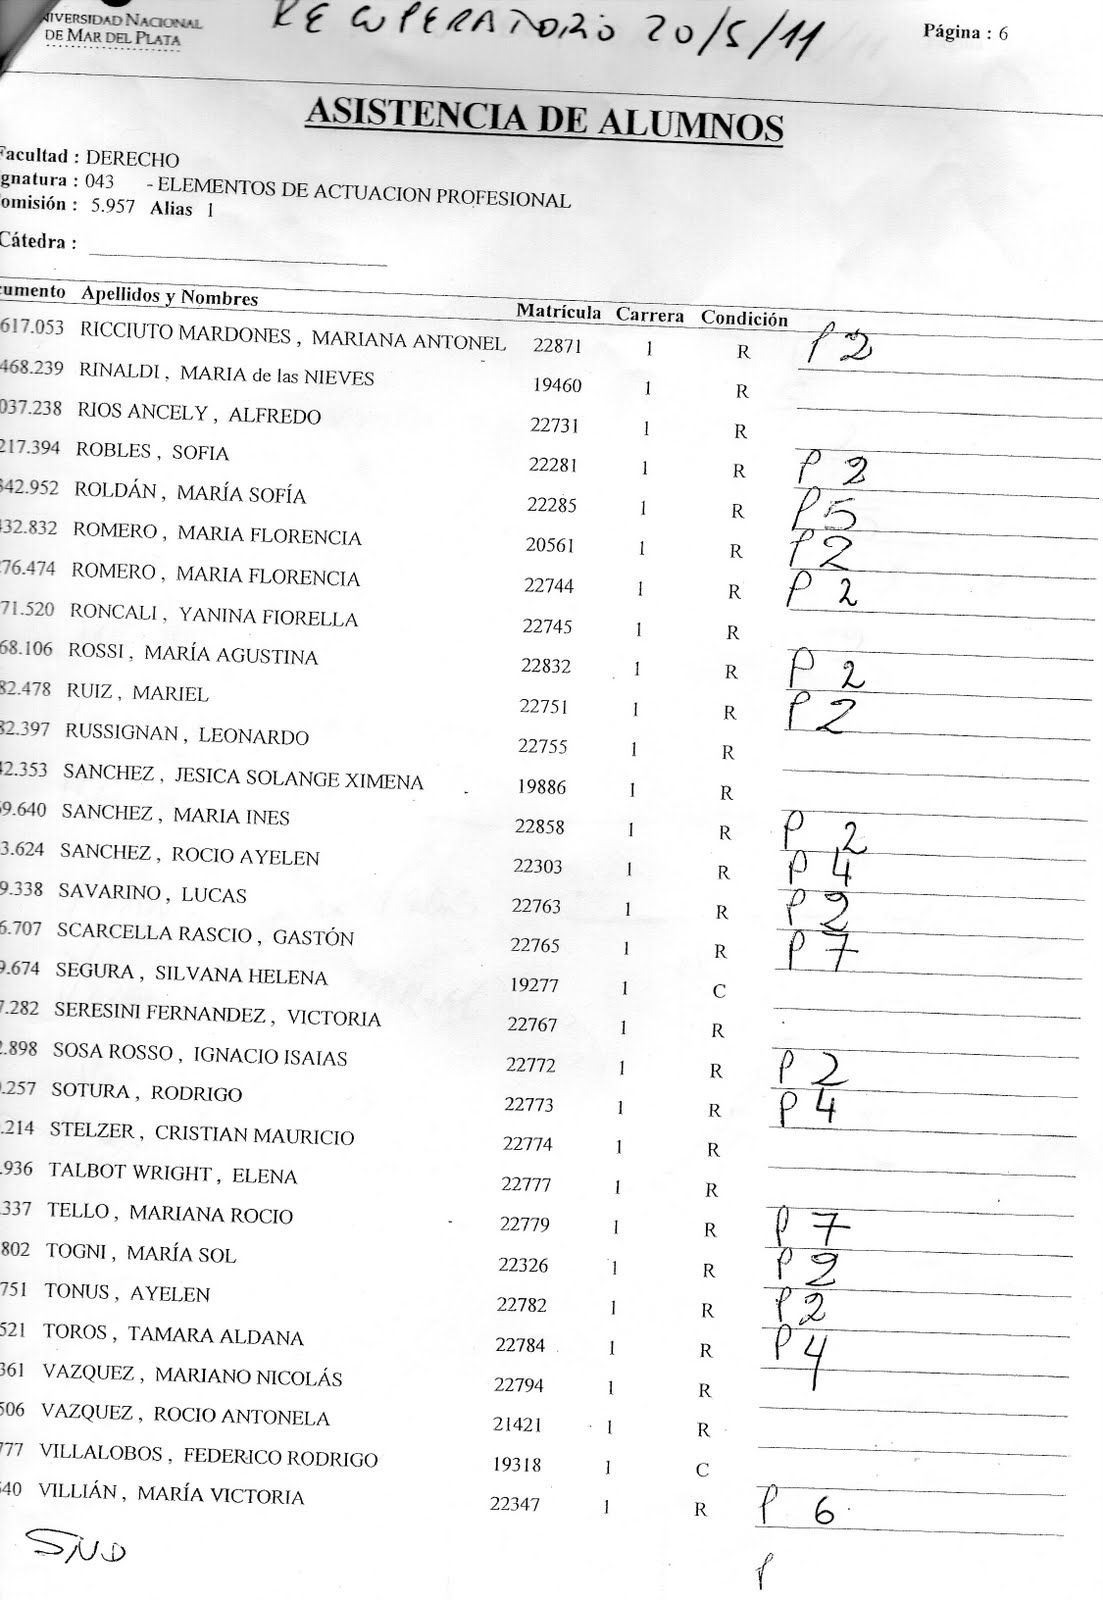 NIVERSIDAD NACIONAL
DE MAR DEL PLATA
RECUPERATORIO 20/5/11
Página : 6
ASISTENCIA DE ALUMNOS
Facultad : DERECHO
gnatura : 043 - ELEMENTOS DE ACTUACION PROFESIONAL
omisión : 5.957 Alias 1
Cátedra :
cumento Apellidos y Nombres Matrícula Carrera Condición
617.053 RICCIUTO MARDONES , MARIANA ANTONEL 22871 1 R P 2
468.239 RINALDI , MARIA de las NIEVES 19460 1 R
037.238 RIOS ANCELY , ALFREDO 22731 1 R
217.394 ROBLES , SOFIA 22281 1 R P 2
342.952 ROLDÁN , MARÍA SOFÍA 22285 1 R P 5
432.832 ROMERO , MARIA FLORENCIA 20561 1 R P 2
276.474 ROMERO , MARIA FLORENCIA 22744 1 R P 2
71.520 RONCALI , YANINA FIORELLA 22745 1 R
68.106 ROSSI , MARÍA AGUSTINA 22832 1 R P 2
82.478 RUIZ , MARIEL 22751 1 R P 2
82.397 RUSSIGNAN , LEONARDO 22755 1 R
42.353 SANCHEZ , JESICA SOLANGE XIMENA 19886 1 R
59.640 SANCHEZ , MARIA INES 22858 1 R P 2
3.624 SANCHEZ , ROCIO AYELEN 22303 1 R P 4
9.338 SAVARINO , LUCAS 22763 1 R P 2
6.707 SCARCELLA RASCIO , GASTÓN 22765 1 R P 7
9.674 SEGURA , SILVANA HELENA 19277 1 C
7.282 SERESINI FERNANDEZ , VICTORIA 22767 1 R
2.898 SOSA ROSSO , IGNACIO ISAIAS 22772 1 R P 2
.257 SOTURA , RODRIGO 22773 1 R P 4
.214 STELZER , CRISTIAN MAURICIO 22774 1 R
.936 TALBOT WRIGHT , ELENA 22777 1 R
.337 TELLO , MARIANA ROCIO 22779 1 R P 7
802 TOGNI , MARÍA SOL 22326 1 R P 2
751 TONUS , AYELEN 22782 1 R P 2
521 TOROS , TAMARA ALDANA 22784 1 R P 4
361 VAZQUEZ , MARIANO NICOLÁS 22794 1 R
506 VAZQUEZ , ROCIO ANTONELA 21421 1 R
777 VILLALOBOS , FEDERICO RODRIGO 19318 1 C
540 VILLIÁN , MARÍA VICTORIA 22347 1 R P 6
P